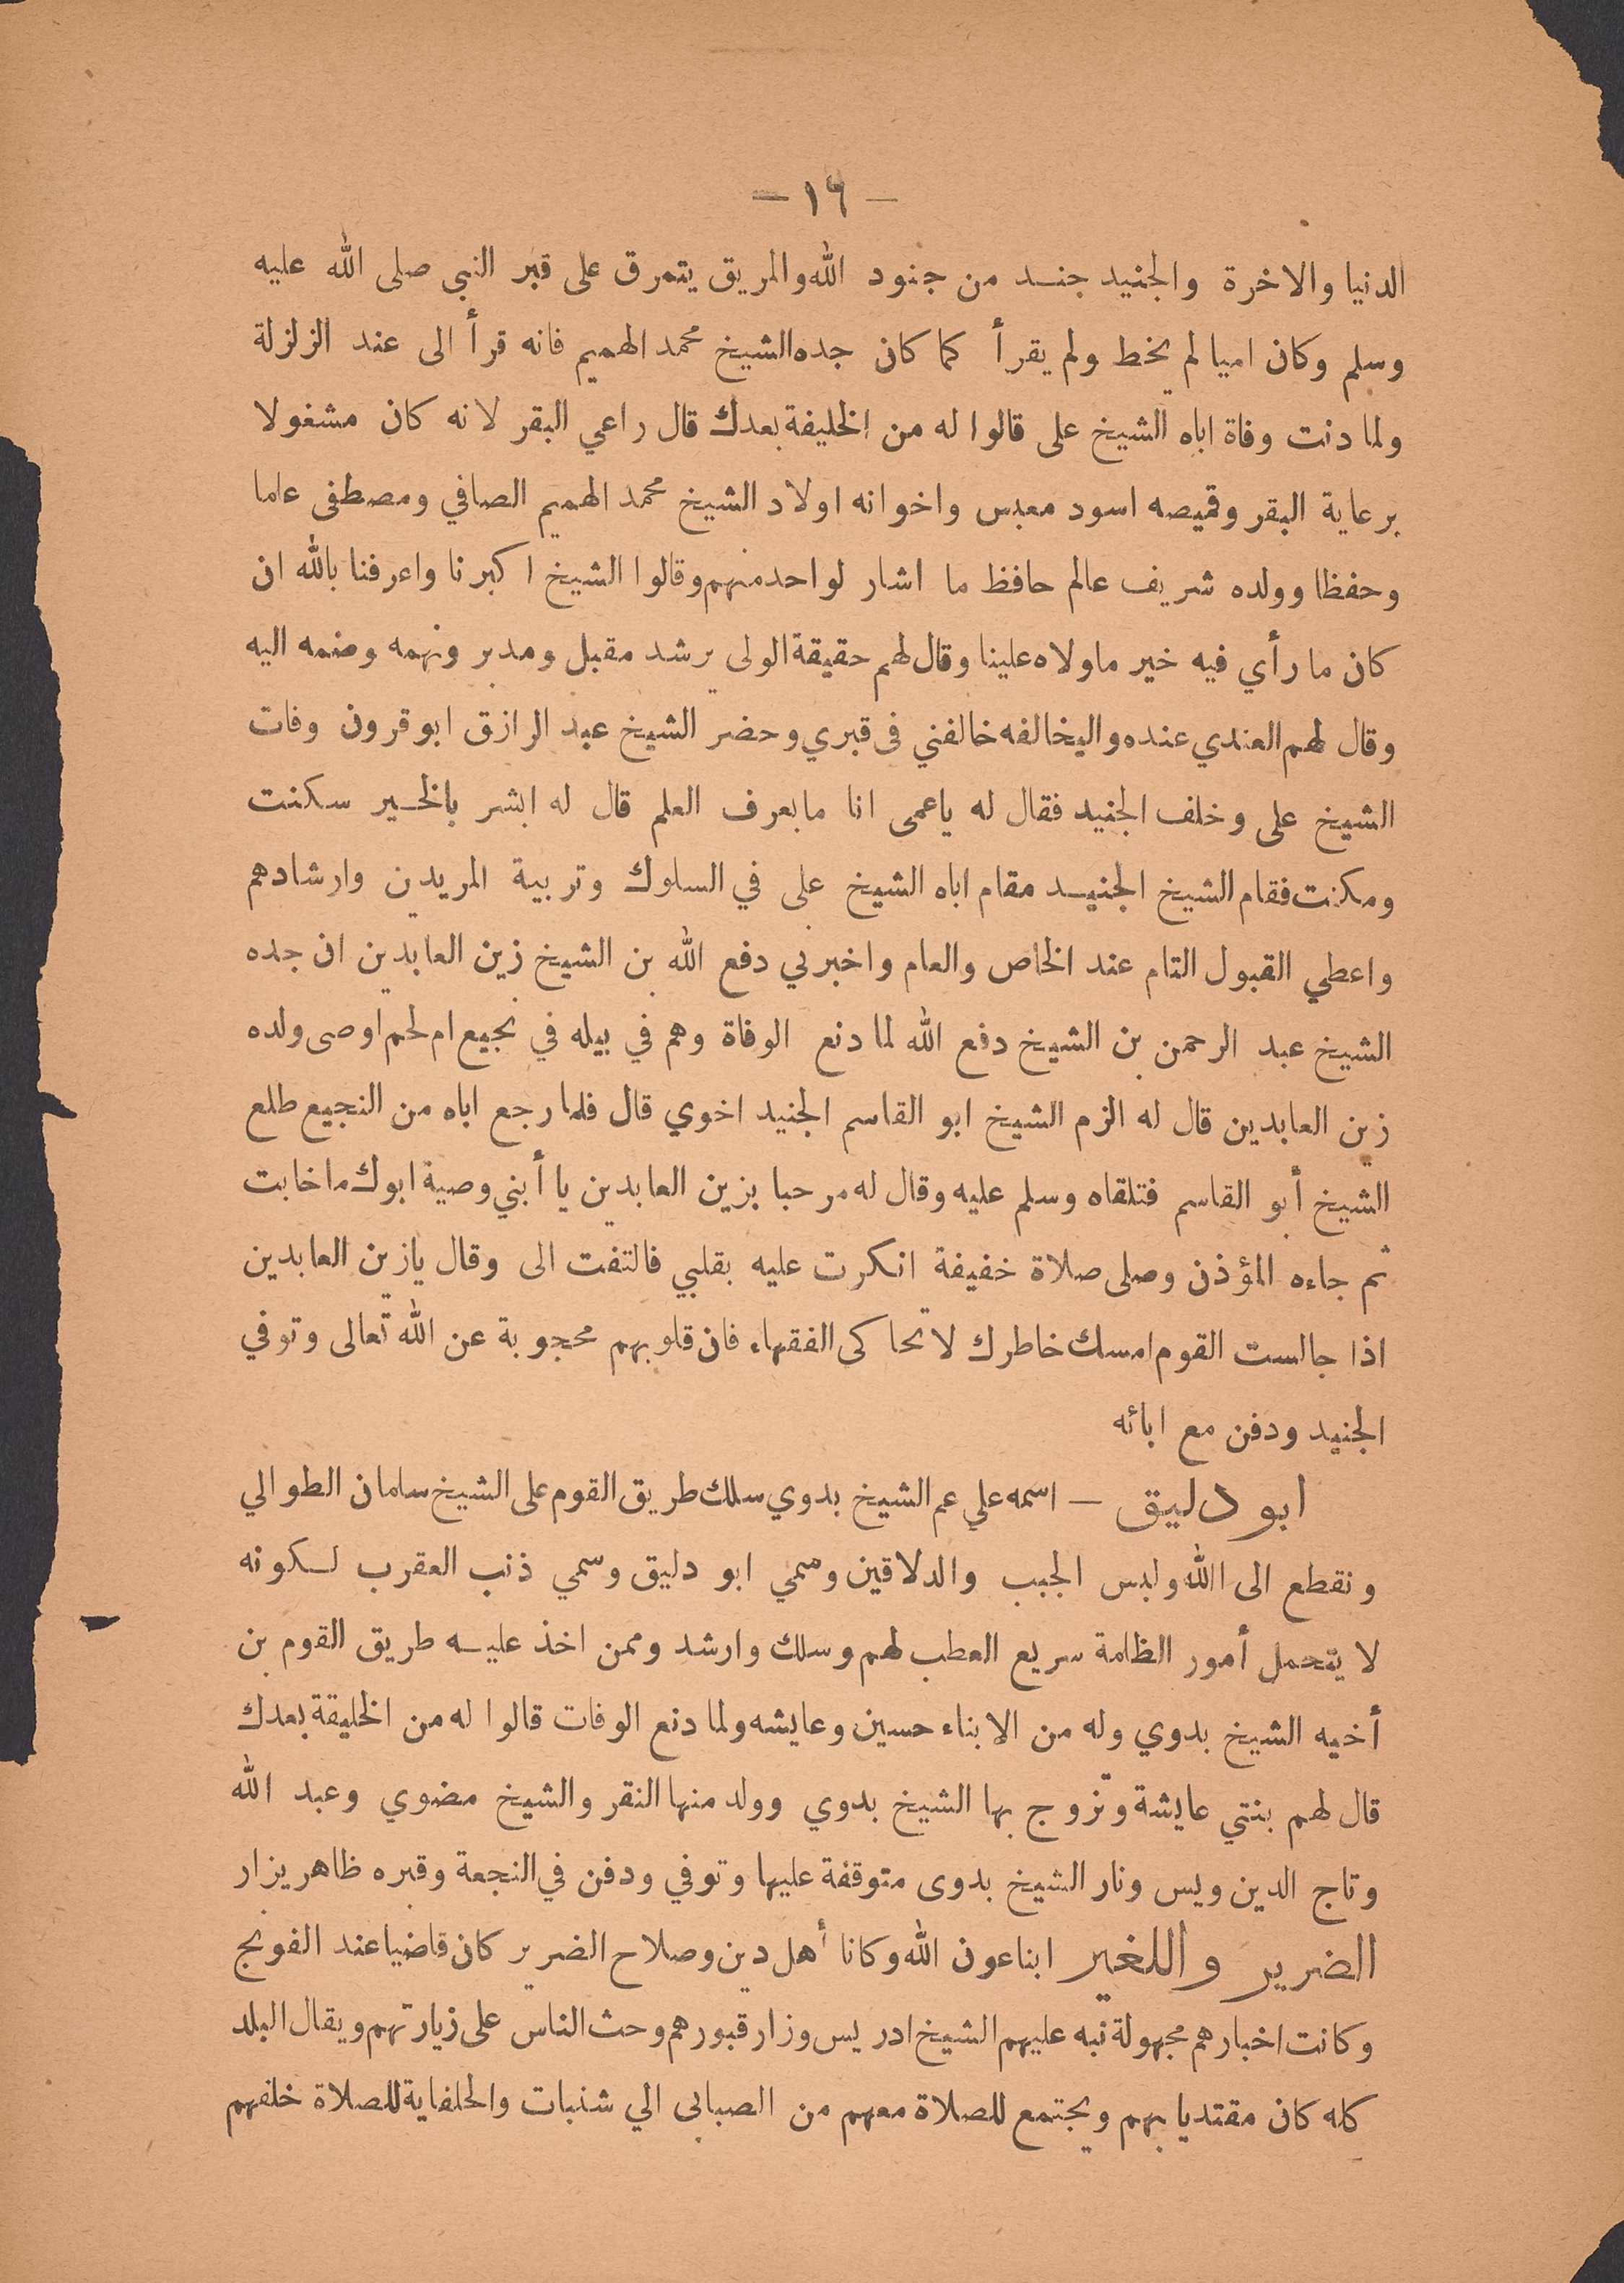 — ١٦ —
الدنيا والاخرة والجنيد جنـد من جنود الله والمريق يتمرق على قبر النبي صلى الله عليه
وسلم وكان اميا لم يخط ولم يقرأ كما كان جده الشيخ محمد الهميم فانه قرأ الى عند الزلزلة
ولما دنت وفاة اباه الشيخ على قالوا له من الخليفة بعدك قال راعي البقر لانه كان مشغولا
برعاية البقر وقميصه اسود معبس واخوانه اولاد الشيخ محمد الهميم الصافي ومصطفى علما
وحفظا وولده شريف عالم حافظ ما اشار لواحد منهم وقالوا الشيخ اكبرنا واعرفنا بالله ان
كان ما رأي فيه خير ماولاه علينا وقال لهم حقيقة الولى يرشد مقبل ومدبر ونهمه وضمه اليه
وقال لهم العندي عنده واليخالفه خالفني فى قبري وحضر الشيخ عبد الرازق ابو قرون وفات
الشيخ على وخلف الجنيد فقال له ياعمى انا مابعرف العلم قال له ابشر بالخـير سكنت
ومكنت فقام الشيخ الجنيـد مقام اباه الشيخ على في السلوك وتربية المريدن وارشادهم
واعطي القبول التام عند الخاص والعام واخبرني دفع الله بن الشيخ زين العابدين ان جده
الشيخ عبد الرحمن بن الشيخ دفع الله لما دنع الوفاة وهم في بيله في نجيع ام لحم اوصى ولده
زين العابدين قال له الزم الشيخ ابو القاسم الجنيد اخوي قال فلما رجع اباه من النجيع طلع
الشيخ أبو القاسم فتلقاه وسلم عليه وقال له مرحبا بزين العابدين يا أبني وصية ابوك ما خابت
ثم جاءه المؤذن وصلى صلاة خفيفة انكرت عليه بقلبي فالتفت الى وقال يازين العابدين
اذا جالست القوم امسك خاطرك لا تحاكى الفقهاء فان قلوبهم محجوبة عن الله تعالى وتوفي
الجنيد ودفن مع ابائه
ابو دليق — اسمه علي عم الشيخ بدوي سلك طريق القوم على الشيخ سلمان الطوالي
ونقطع الى الله ولبس الجبب والدلاقين وسمي ابو دليق وسمي ذنب العقرب لـكونه
لا يتحمل أمور الظلمة سريع العطب لهم وسلك وارشد وممن اخذ عليـه طريق القوم بن
أخيه الشيخ بدوي وله من الابناء حسين وعايشه ولما دنع الوفات قالوا له من الخليقة بعدك
قال لهم بنتي عايشة وتزوج بها الشيخ بدوي وولد منها النقر والشيخ مضوي وعبد الله
وتاج الدين ويس ونار الشيخ بدوى متوقفة عليها وتوفي ودفن في النجعة وقبره ظاهر يزار
الضرير واللغير ابنا عون الله وكانا أهل دين وصلاح الضرير كان قاضيا عند الفونج
وكانت اخبارهم مجهولة نبه عليهم الشيخ ادريس وزار قبورهم وحث الناس على زيارتهم ويقال البلد
كله كان مقتديا بهم ويجتمع للصلاة معهم من الصبابى الي شنبات والحلفاية للصلاة خلفهم